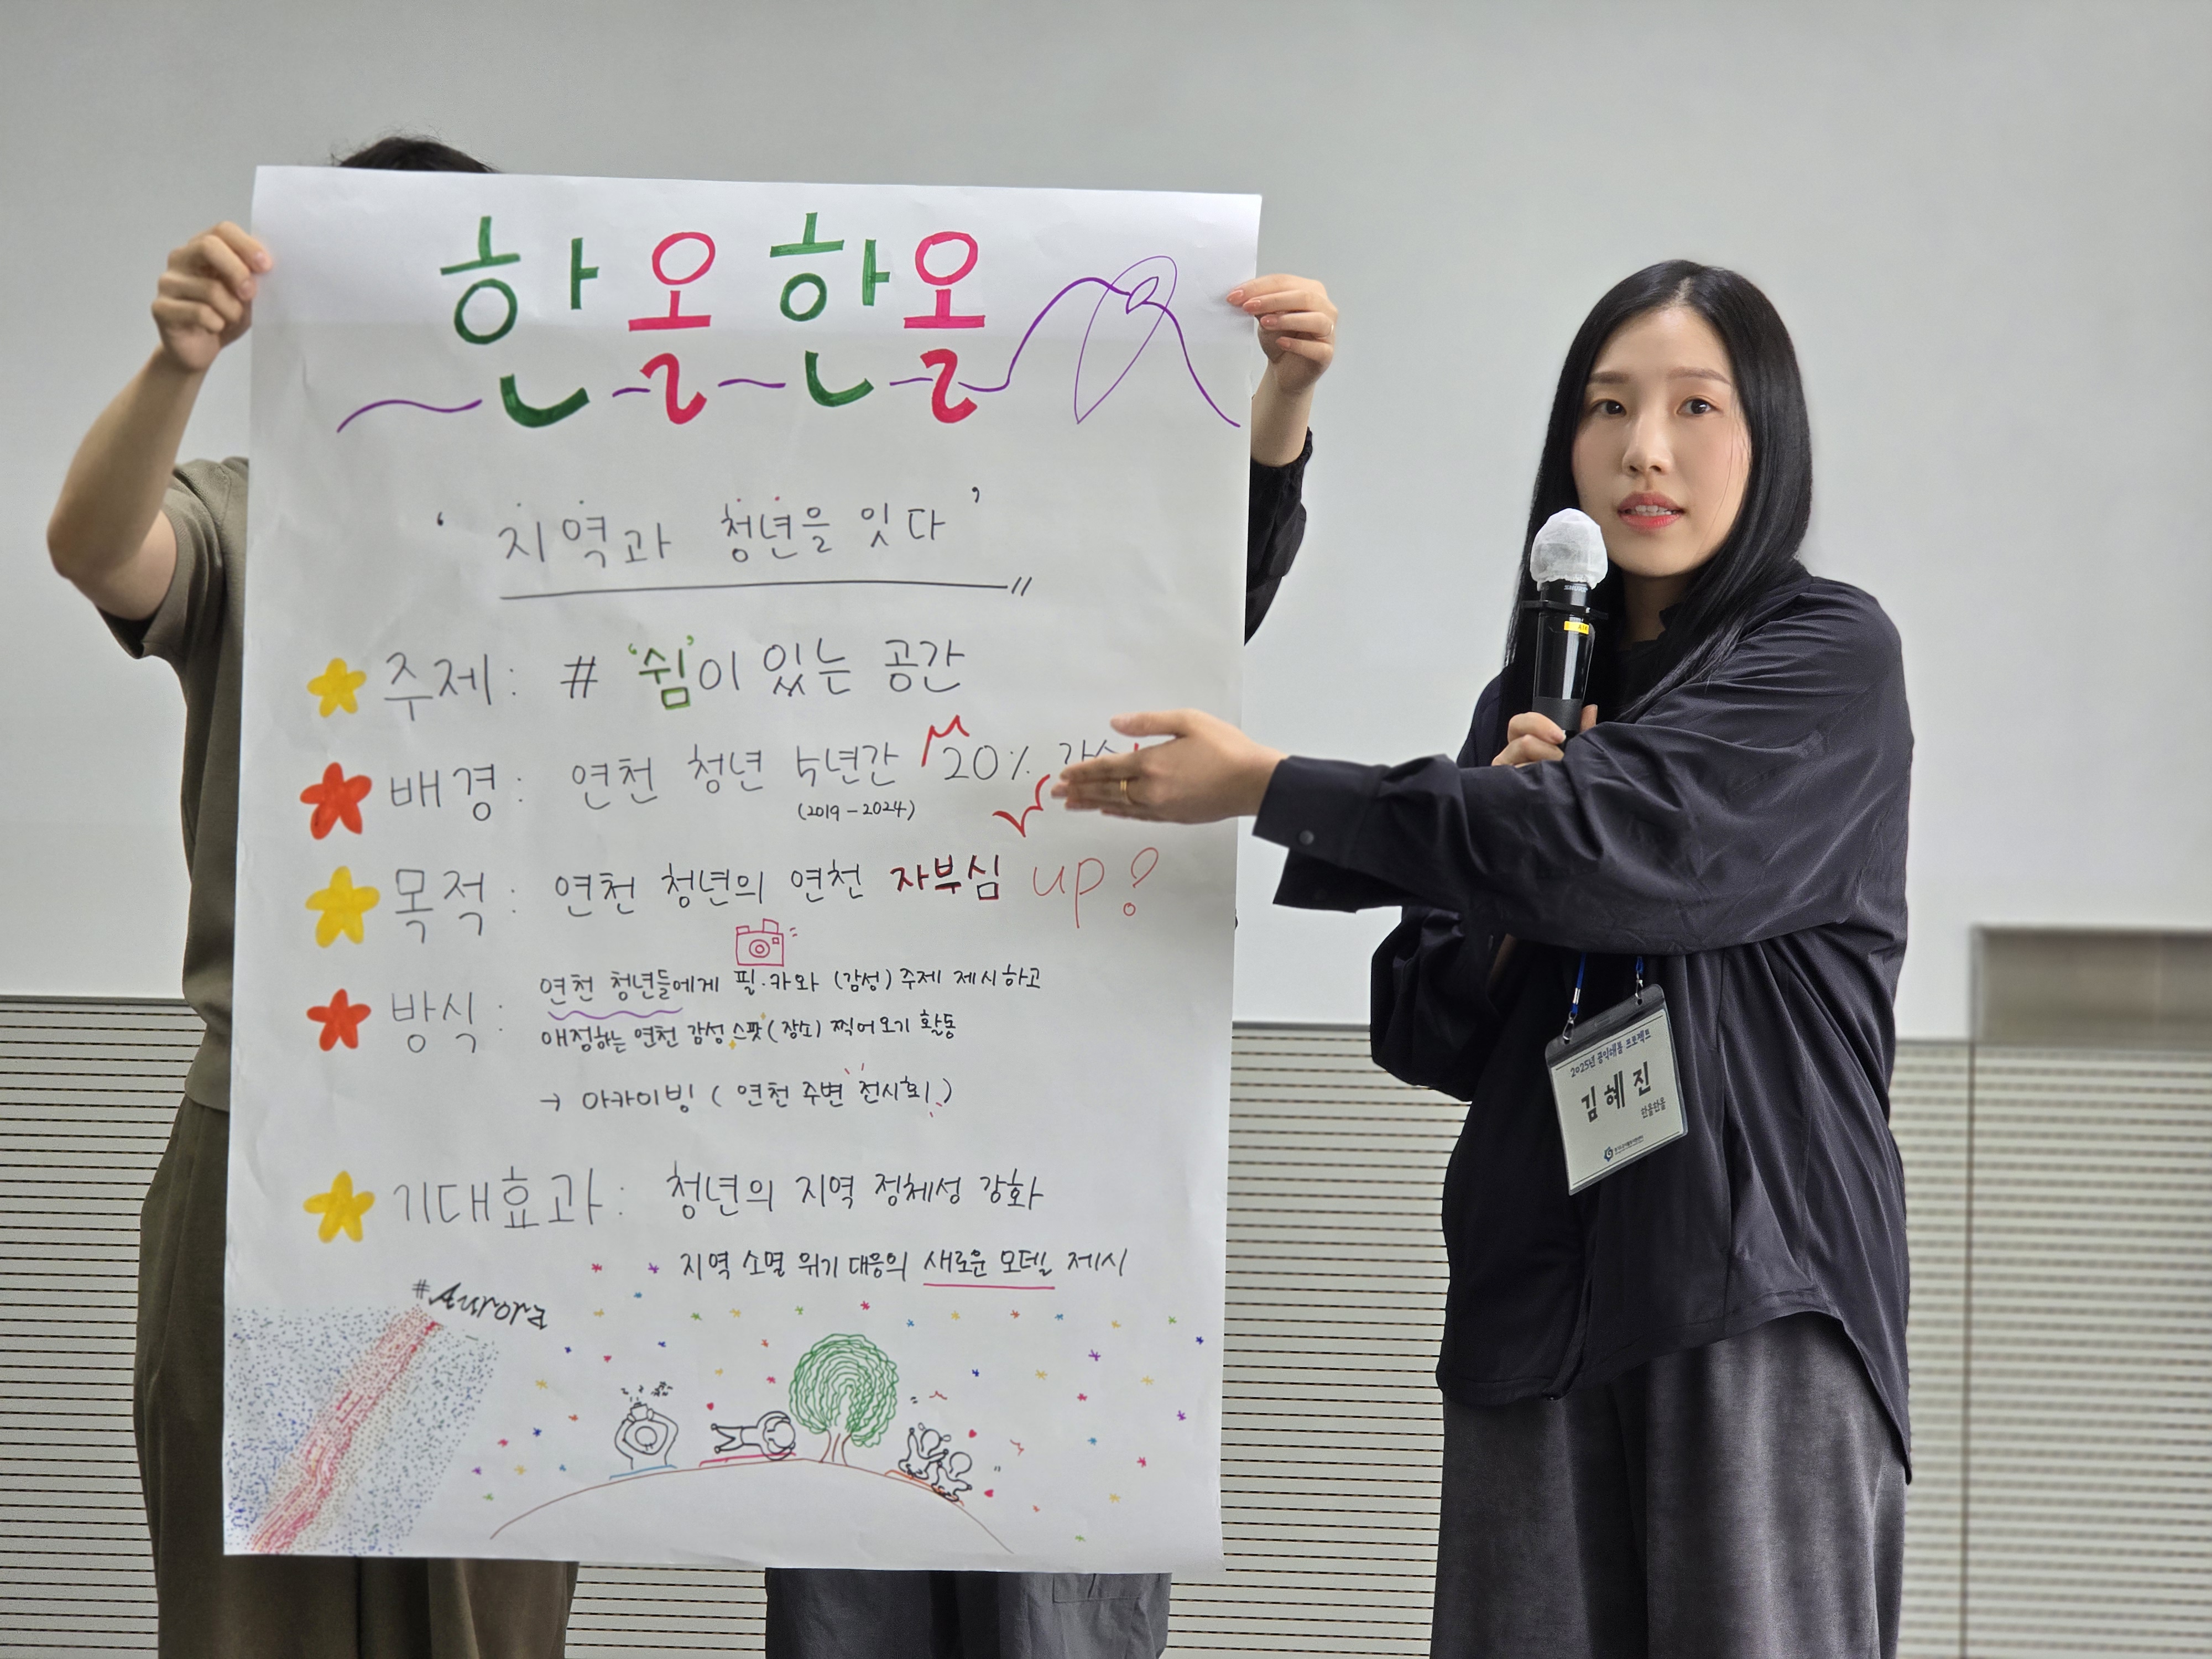 한올한올
‘지역과 청년을 잇다’
주제: # ‘쉼’이 있는 공간
배경: 연천 청년 5년간 20%
(2019-2024)
목적: 연천 청년의 연천 자부심 up?
방식: 연천 청년들에게 필.카와 (감성) 주제 제시하고
애정하는 연천 감성 스팟(장소) 찍어오기 활동
→ 아카이빙 (연천 주변 전시회)
기대효과: 청년의 지역 정체성 강화
지역 소멸 위기 대응의 새로운 모델 제시
#Aurora
2025년 공익애풀 프로젝트
김혜진
한올한올